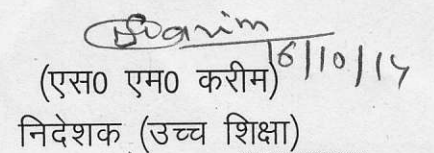 16/10/14
(एस0 एम0 करीम)
निदेशक (उच्च शिक्षा)